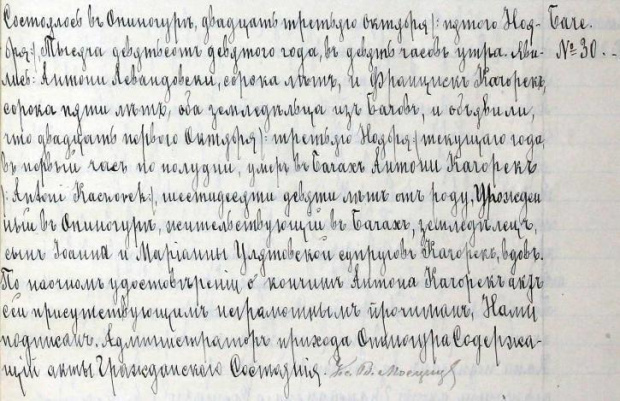 Состоялось въ Опиногурѣ, двадцать третьяго Октября /: пятого Ноя-
бря :/, Тысяча девятьсотъ девятого года, въ девять часовъ утра. Яви-
лись: Антони Левандовски, сорока лѣтъ, и Францискъ Качорекъ,
сорока пяти лѣтъ, оба земледѣльца изъ Бачовъ, и объявили,
что двадцать перваго Октября /: третьяго Ноября :/ текущаго года
въ первый часъ по полудни, умеръ въ Бачахъ Антони Качорекъ
/: Antoni Kaczorek :/, шестидесяти девяти лѣтъ отъ роду, урожден-
ный въ Опиногурѣ, жительствующій въ Бачахъ, земледѣлецъ,
сынъ Іоанна и Маріанны супруговъ Качорекъ, вдовъ.
По наочномъ удостовѣреніи о кончинѣ Антона Качорекъ актъ
сей присутствующимъ неграмотнымъ прочитанъ, Нами
подписанъ. Администраторъ прихода Опиногура Содержа-
щій акты Гражданского Состоянія.
Баче.
№ 30.